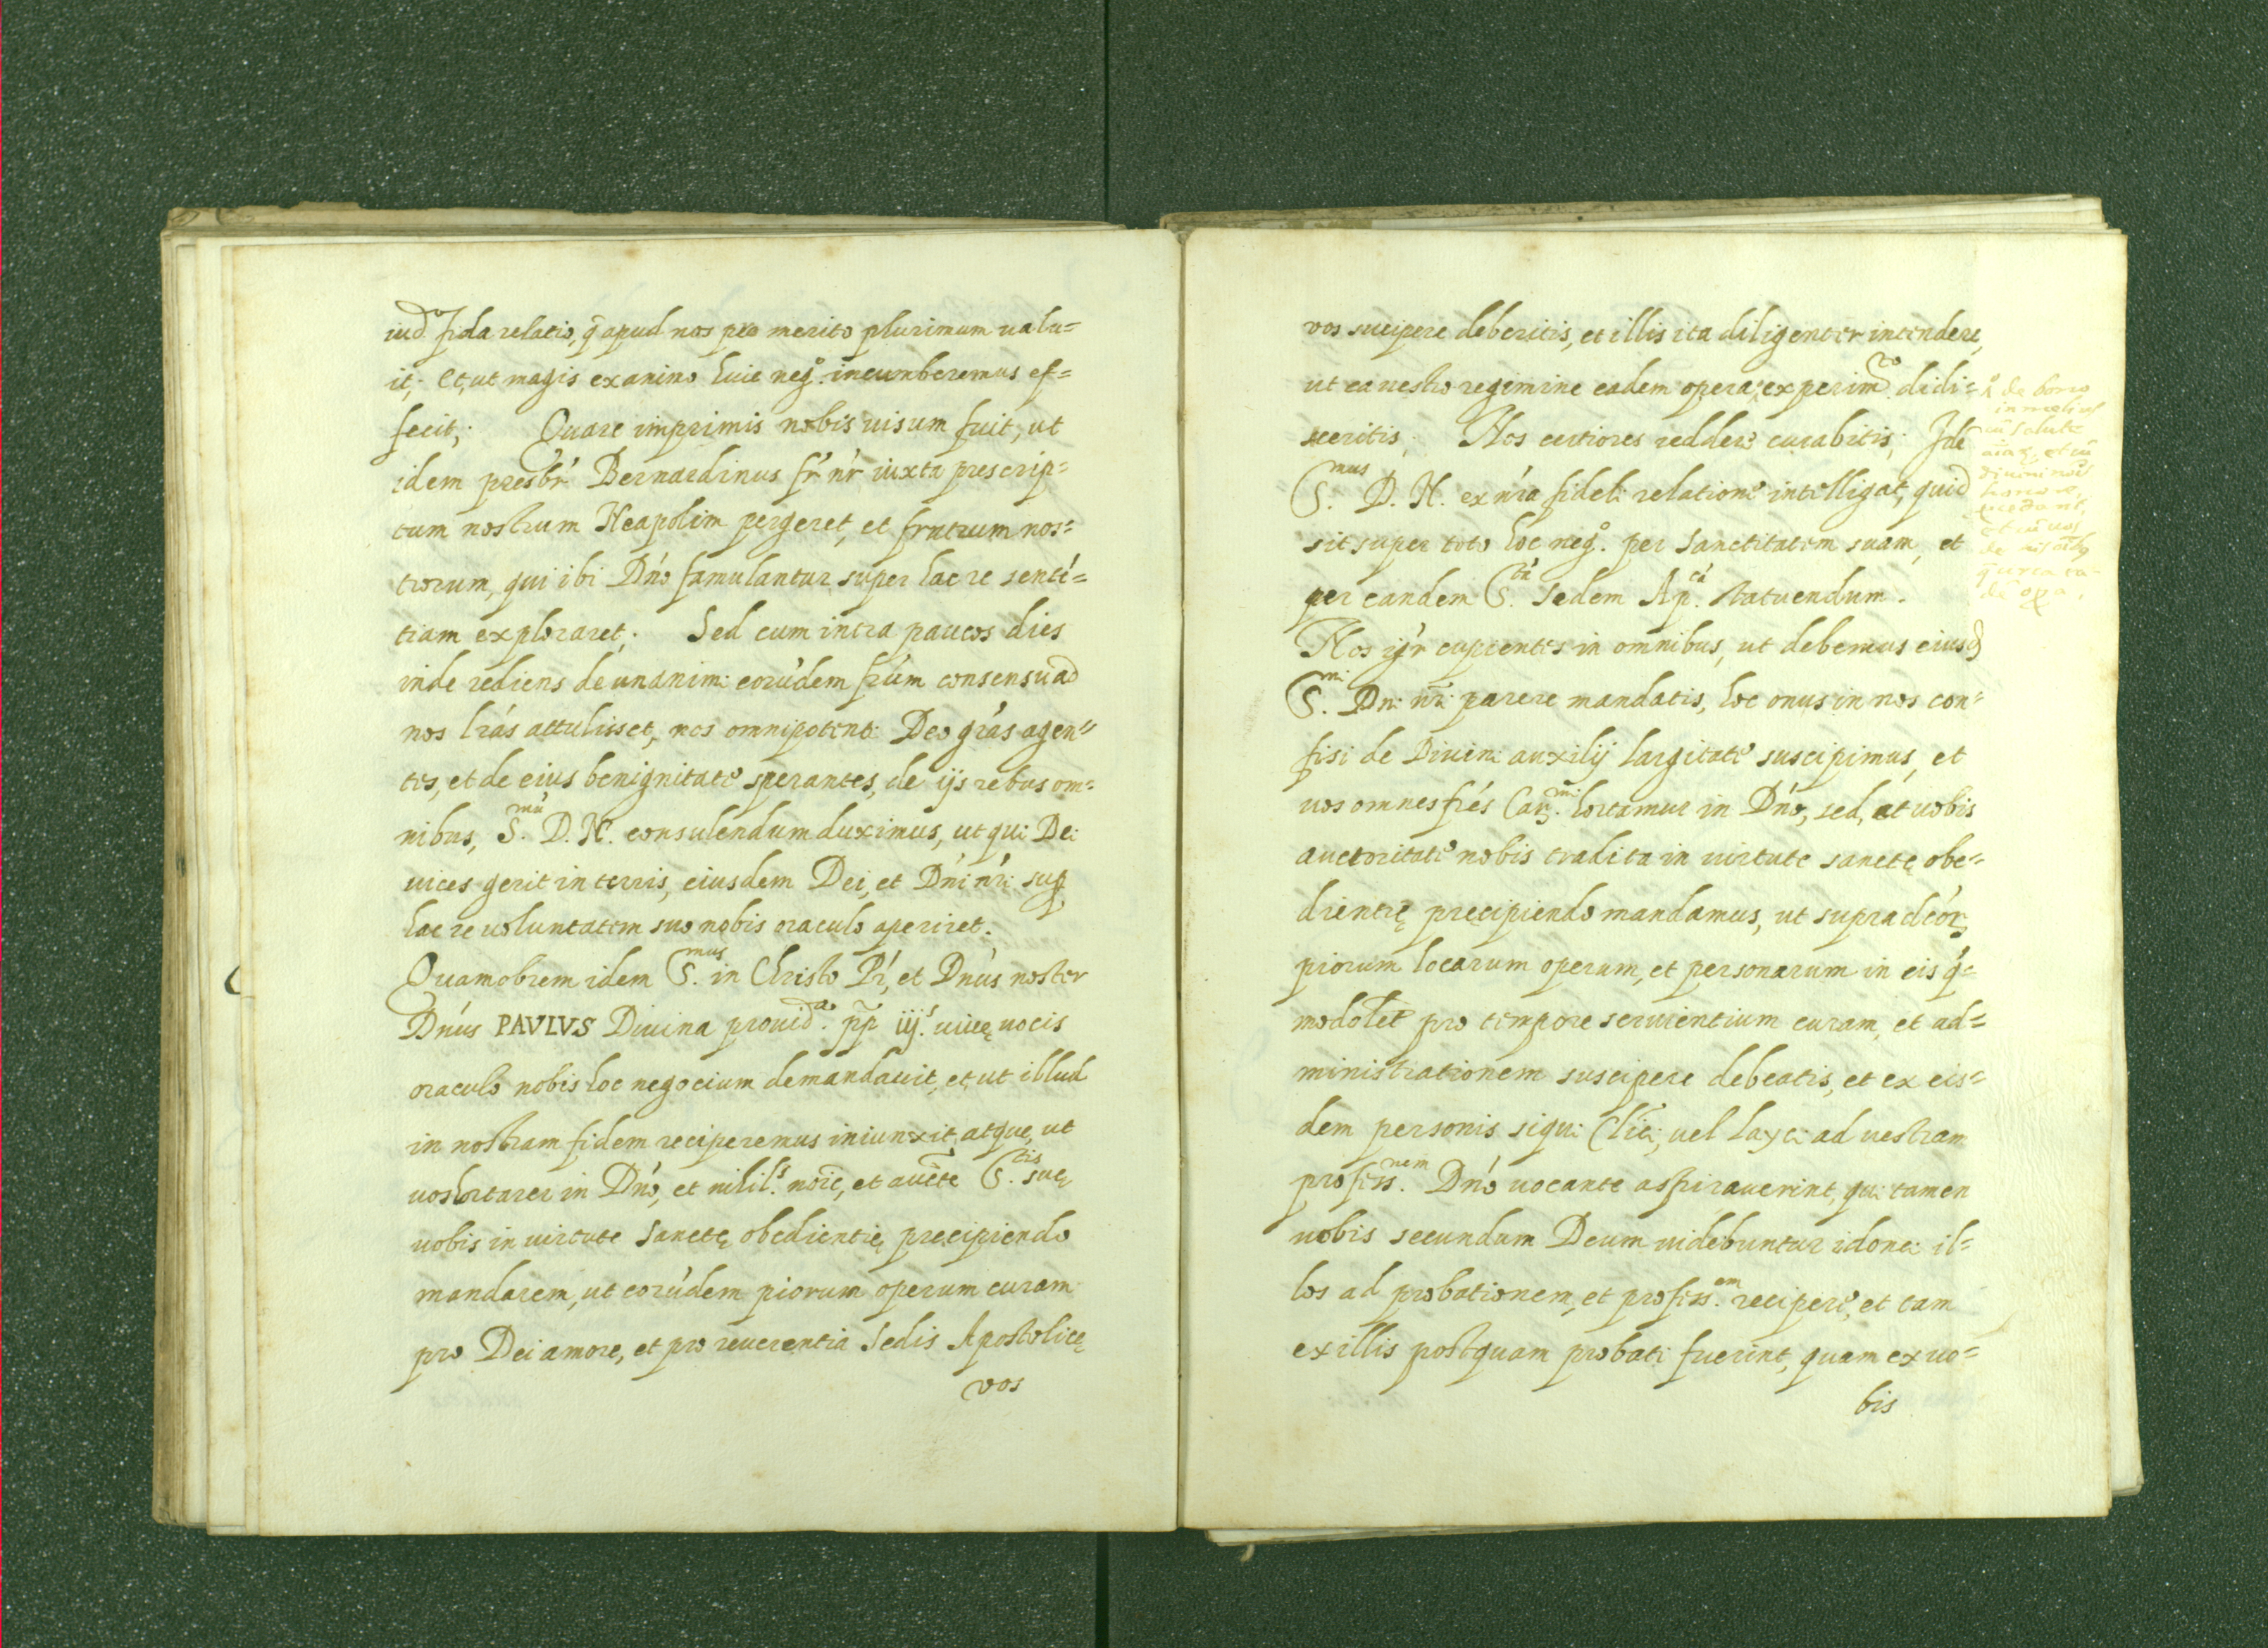 iud fida relatio, q̃ apud nos pro merito plurimum ualu=
it; Et, ut magis ex animo huic neg.º incumberemus ef=
fecit; Quare imprimis nobis uisum fuit, ut
idem presbr̃ Bernardinus fr̃ nr̃ iuxta prescrip=
tum nostrum Neapolim pergeret, et fratrum nos=
trorum, qui ibi Dńo famulantur super hac re sentẽ=
tiam exploraret; Sed cum intra paucos dies
inde rediens de unanimi eorũdem frũm consensu ad
nos lrás attulisset, nos omnipotenti Deo grás agen=
tes, et de eius benignitate sperantes, de ijs rebus om=
nibus, S.mũ D. N. consulendum duximus, ut qui Dei
uices gerit in terris, eiusdem Dei, et Dńi nrĩ sup
hac re uoluntatem suo nobis oraculo aperiret.
Quamobrem idem S.mus in Christo Pr̃, et Dnús noster
Dnús PAVLVS Diuina prouid.a pp̃ iij.s uiuę uocis
oraculo nobis hoc negocium demandauit, et ut illud
in nostram fidem reciperemus iniunxit, atque, ut
uos hortarer in Dńo, et nihil.s noĩe, et aucte S.tis suę
uobis in uirtute Sanctę obedientię precipiendo
mandarem, ut eorũdem piorum operum curam
pro Dei amore, et pro reuerentia Sedis Apostolicę
vos
vos sucipere deberitis, et illis ita diligenter intendere,
ut ea uestro regimine eadem opera, experim.to didi=
sceritis; Nos certiores reddere curabitis; Idẽ
S.mus D. N. ex nrá fideli relatione intelligat, quid
sit super toto hoc neg.º per Sanctitatem suam, et
per eandem S.tã Sedem Ap.cã statuendum.
Nos igr̃ cupientes in omnibus, ut debemus eiusd
S.mi Dni nrĩ parere mandatis, hoc onus in nos con=
fisi de Diuini auxilij largitate suscipimus, et
uos omnes frés Car.mi hortamur in Dńo, sed, et uobis
auctoritate nobis tradita in uirtute sanctę obe=
dientię precipiendo mandamus, ut supradcór
piorum locarum operum, et personarum in eis q̃=
modolet pro tempore seruientium curam, et ad=
ministrationem suscipere debeatis, et ex eis=
dem personis siqui Clĩci, uel Layci ad uestram
profess.nem Dńo uocante aspirauerint, qui tamen
uobis secundum Deum uidebuntur idonei il=
los ad probationem, et profess.em recipere, et tam
ex illis postquam probati fuerint, quam ex uo=
bis
de bono
in melius
cũ salute
aĩaꝝ, et cũ
diuini
honore,